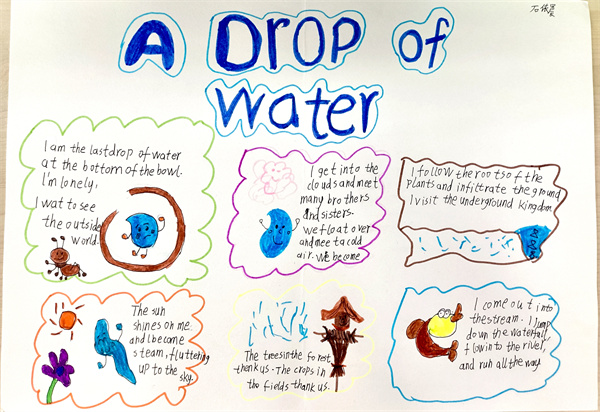 A Drop of
Water
I am the lastdrop of water
at the bottom of the bowl.
I'm lonely,
I wat to see
the outside
world.
I get into the
clouds and meet
many brothers
and sisters.
we float over
and meet a cold
air. We become
I follow the roots of the
plants and infiltrate the ground
I visit the underground kingdom
The sun
shines on me.
and I become
steam, fluttering
up to the
sky.
The trees in the forest
thank us. The crops in
the fields thank us.
I come out into
the stream. I jump
down the waterfall,
flow into the river,
and run all the way